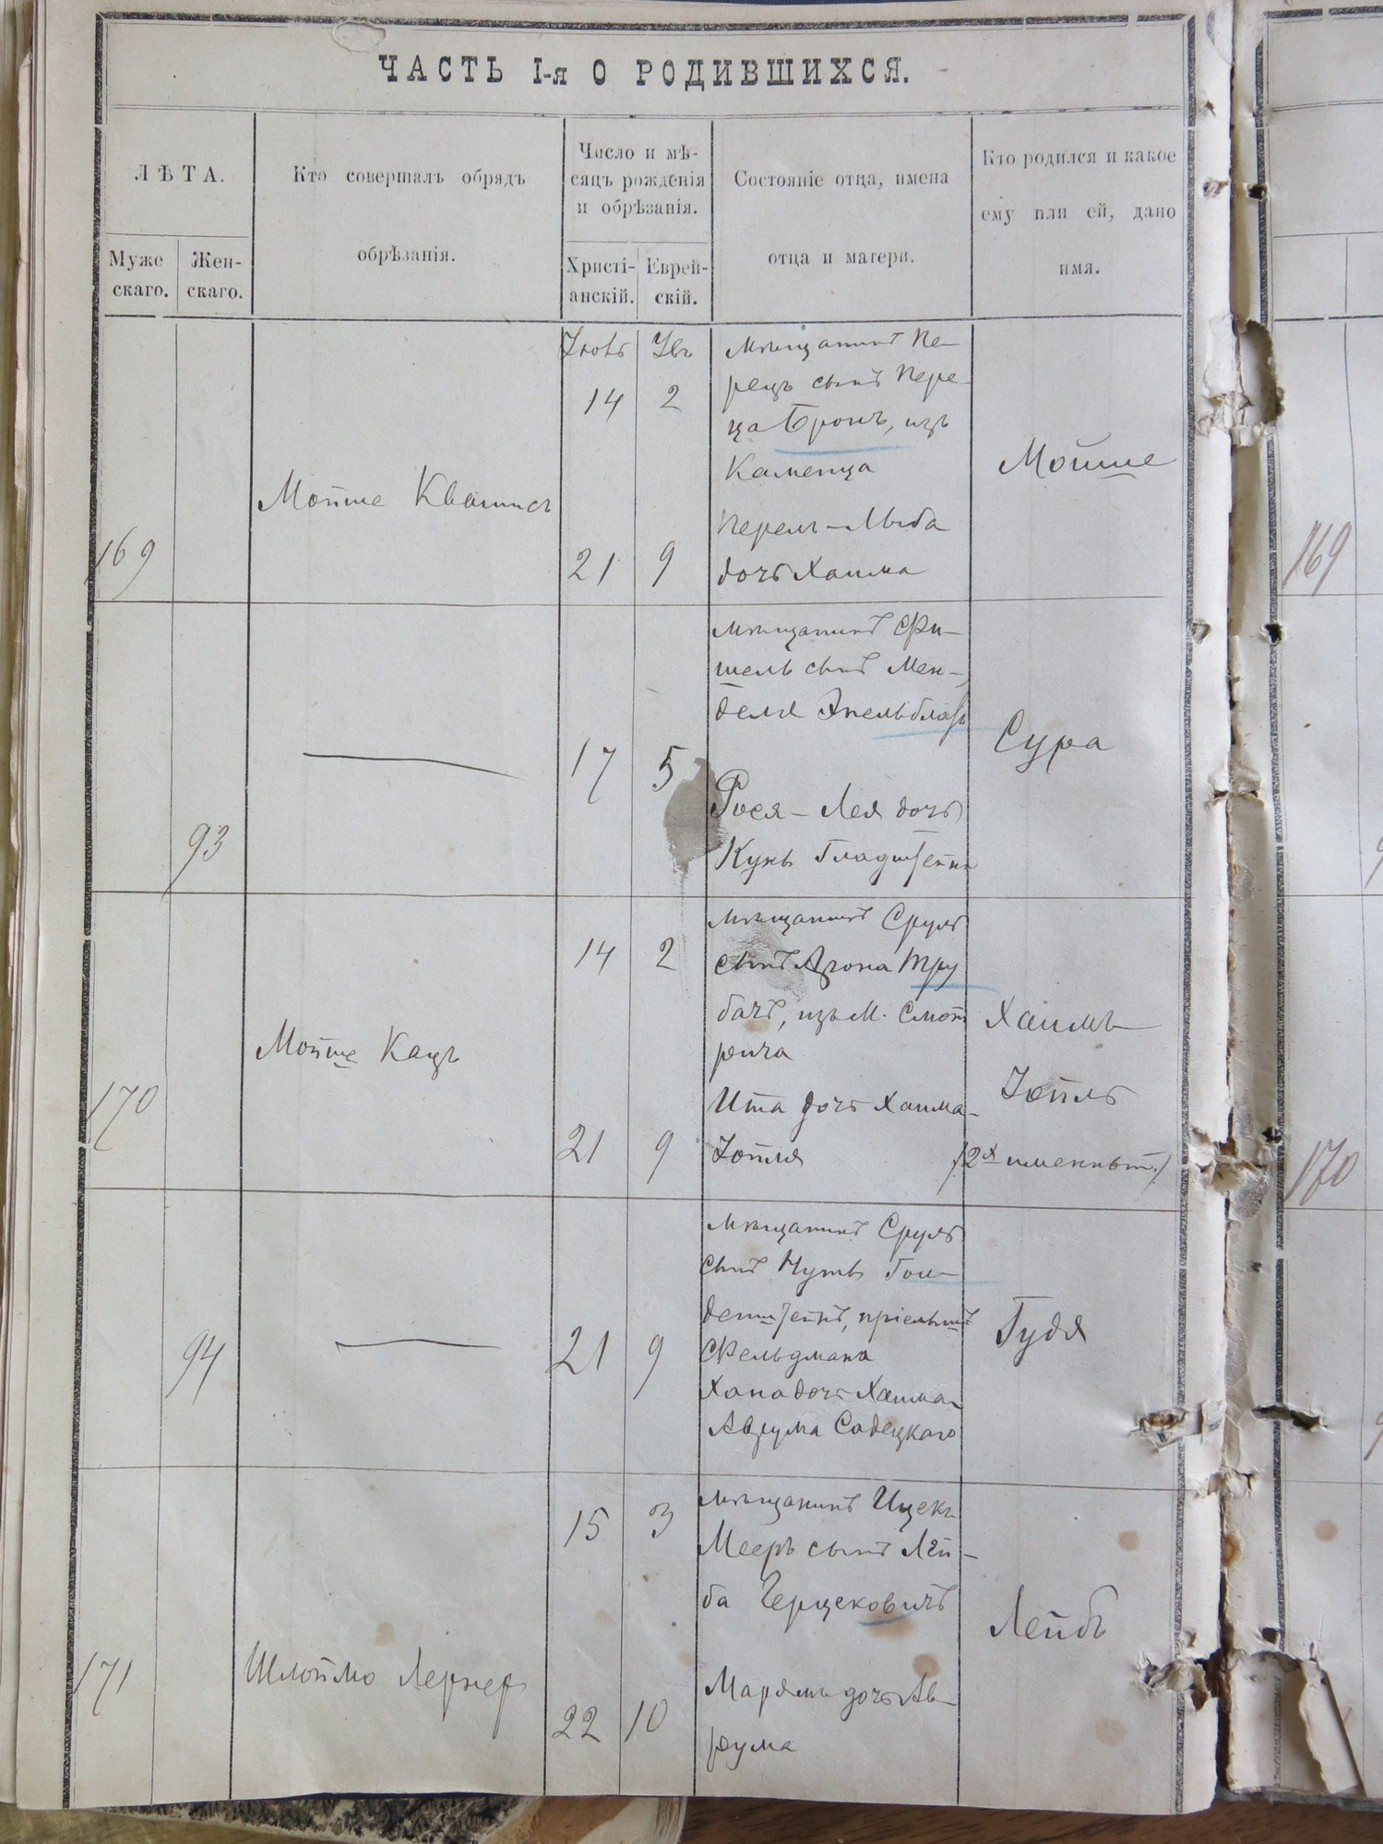 ЧАСТЬ I-я О РОДИВШИХСЯ.
ЛѢТА.
Муже
скаго.
Жен-
скаго.
Кто совершалъ обрядъ
обрѣзанія.
Число и мѣ-
сяцъ рожденія
и обрѣзанія.
Христі-
анскій.
Еврей-
скій.
Состояніе отца, имена
отца и матери.
Кто родился и какое
ему или ей, дано
имя.
169
Мойше Квашисъ
14 2
21 9
мѣщанинъ Пе-
рецъ сынъ Пере-
ца Бронъ, изъ
Каменца
Перель-Люба
дочь Хаима
Мойше
169
93
17 5
мѣщанинъ Фи-
шель сынъ Мен-
деля
Рося-Лея дочь
Кунь Гладштейнъ
Сура
170
Мойше Кацъ
14 2
21 9
мѣщанинъ Сруль
сынъ Арона Тру
бачъ, изъ М. Смот
рича
Ита дочь Хаима-
Іойля
Хаимъ
Іойль
/2х именный/
170
94
21 9
мѣщанинъ Сруль
сынъ Нутъ Гол-
денштейнъ,
Фельдмана
Хана дочь Хаима-
Аврума Садецкаго
Гудя
171
Шлоймо Лернер
15 3
22 10
мѣщанинъ Ицекъ
Мееръ сынъ Лей-
ба Герцековичъ
Марямъ дочь Ав-
рума
Лейбъ